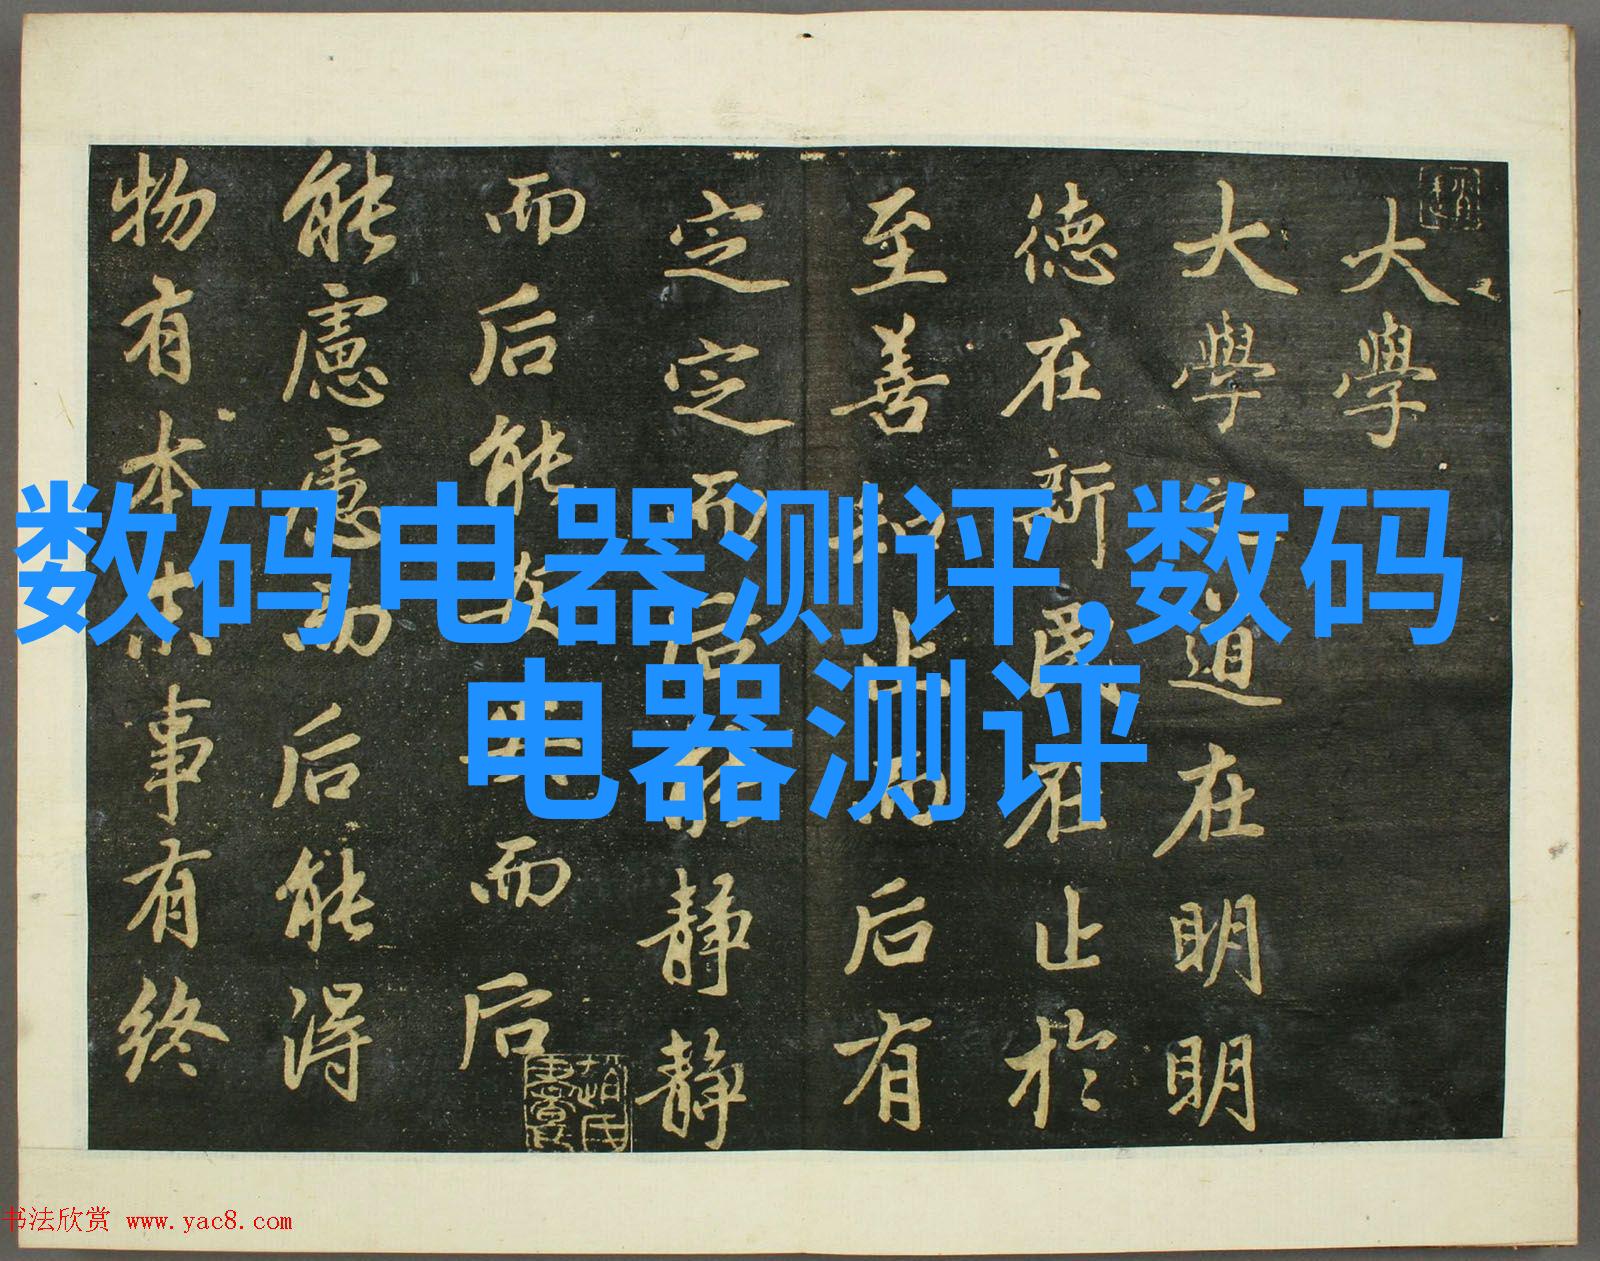 大學
大學之道在明明
德在新民在止於
至善知止而后有
定定而后能静静
而后能安安而后
能慮慮而后能得
物有本末事有終
数码电器测评,数码
电器测评
书法欣赏 www.yac8.com